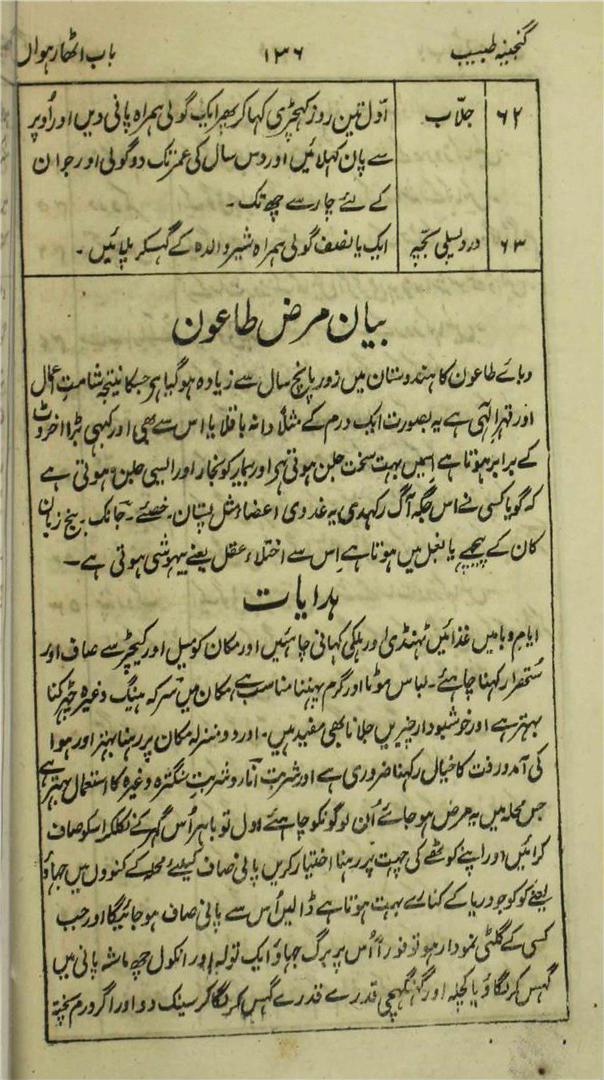 گنجینہ طبیب ۱۳۶ باب اٹھارہواں
۶۲ جلّاب اوّل تین روز کھچڑی کہا کر پھر ایک گولی ہمراہ پانی دیں اور اُوپر
سے پان کہلائیں اور دس سال کی عمر تک دو گولی اور جوان
کے لئے چار سے چھ تک ۔
۶۳ درد پسلی بچہ ایک یا نصف گولی ہمراہ شیر والدہ کے گہسکر پلائیں ۔
بیان مرض طاعون
وبائے طاعون کا ہندوستان میں زور پانچ سال سے زیادہ ہو گیا ہی جسکا نتیجہ شامت اعمال
اور قہر الٰہی ہے یہ بصورت ایک درم کے مثلاً دانہ باقلا یا اس سے بھی اور کبھی بڑا اخروٹ
کے برابر ہوتا ہے اسمیں بہت سخت جلن ہوتی ہی اور بیمار کو بخار اور ایسی جلن ہوتی ہے
کہ گویا کسی نے اس جگہ آگ رکہدی یہ غدوی اعضا مثل پستان ۔ خصئے ۔ جانگ ۔ بیخ زبان
کان کے پیچھے یا بغل میں ہوتا ہے اِس سے اختلاء عقل یعنے بیہوشی ہوتی ہے ۔
ہدایات
ایام وبا میں غذائیں ٹہنڈی اور ہلکی کہانی چاہئیں اور مکان کو میل اور کیچڑ سے صاف اور
ستھرا رکہنا چاہئے ۔ لباس موٹا اور گرم پہننا مناسب ہے مکان میں سرکہ ہینگ وغیرہ چہڑکنا
بہتر ہے اور خوشبودار چیزیں جلانا بھی مفید ہیں ۔ اور دو منزلہ مکان پر رہنا بہتر اور ہوا
کی آمد و رفت کا خیال رکہنا ضروری ہے اور شربت انار و شربت سنگترہ وغیرہ کا استعمال بہتر ہے
جس محلہ میں یہ مرض ہو جائے اُن لوگونکو چاہئے اول تو باہر اُس گہر کے نکلکر اسکو صاف
کرائیں اور اپنے کوٹھے کی چہت پر رہنا اختیار کریں پانی صاف کیلیے محلہ کے کنووں میں جہاؤ
یعنے کو کو جو دریا کے کنارے بہت ہوتا ہے ڈالیں اُس سے پانی صاف ہو جائیگا اور جب
کسی کے گلٹی نمودار ہو تو فوراً اُس پر برگ جہاؤ ایک تولہ اور انکول چھ ماشہ پانی میں
گہس کر لگاؤ یا کچلہ اور گہنگہچی قدرے قدرے گہس کر لگا کر سینک دو اور اگر ورم پختہ